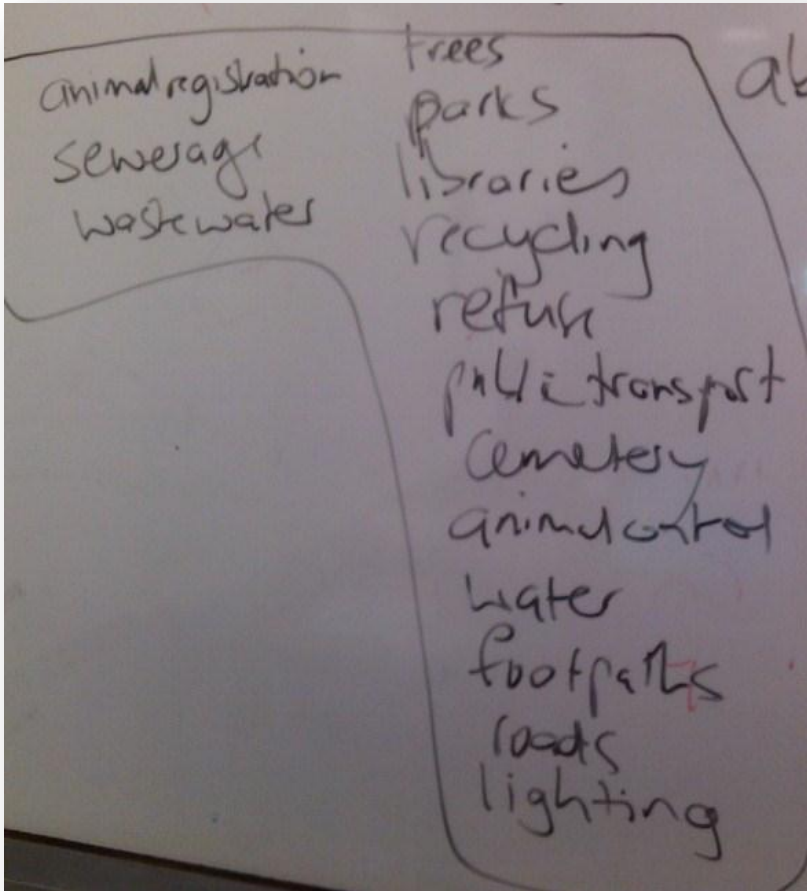 animal registration
sewerage
wastewater
trees
parks
libraries
recycling
refuse
public transport
cemetery
animal control
water
footpaths
roads
lighting